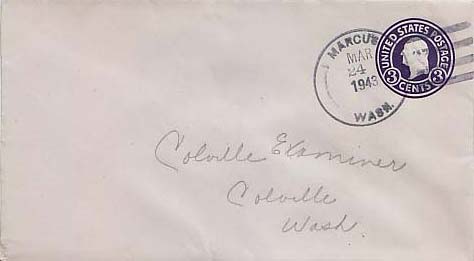 MARCUS
MAR
24
1943
WASH.
UNITED STATES POSTAGE
3 CENTS 3
Colville Examiner
Colville
Wash.